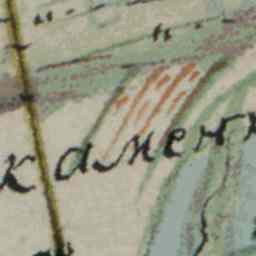 каменн